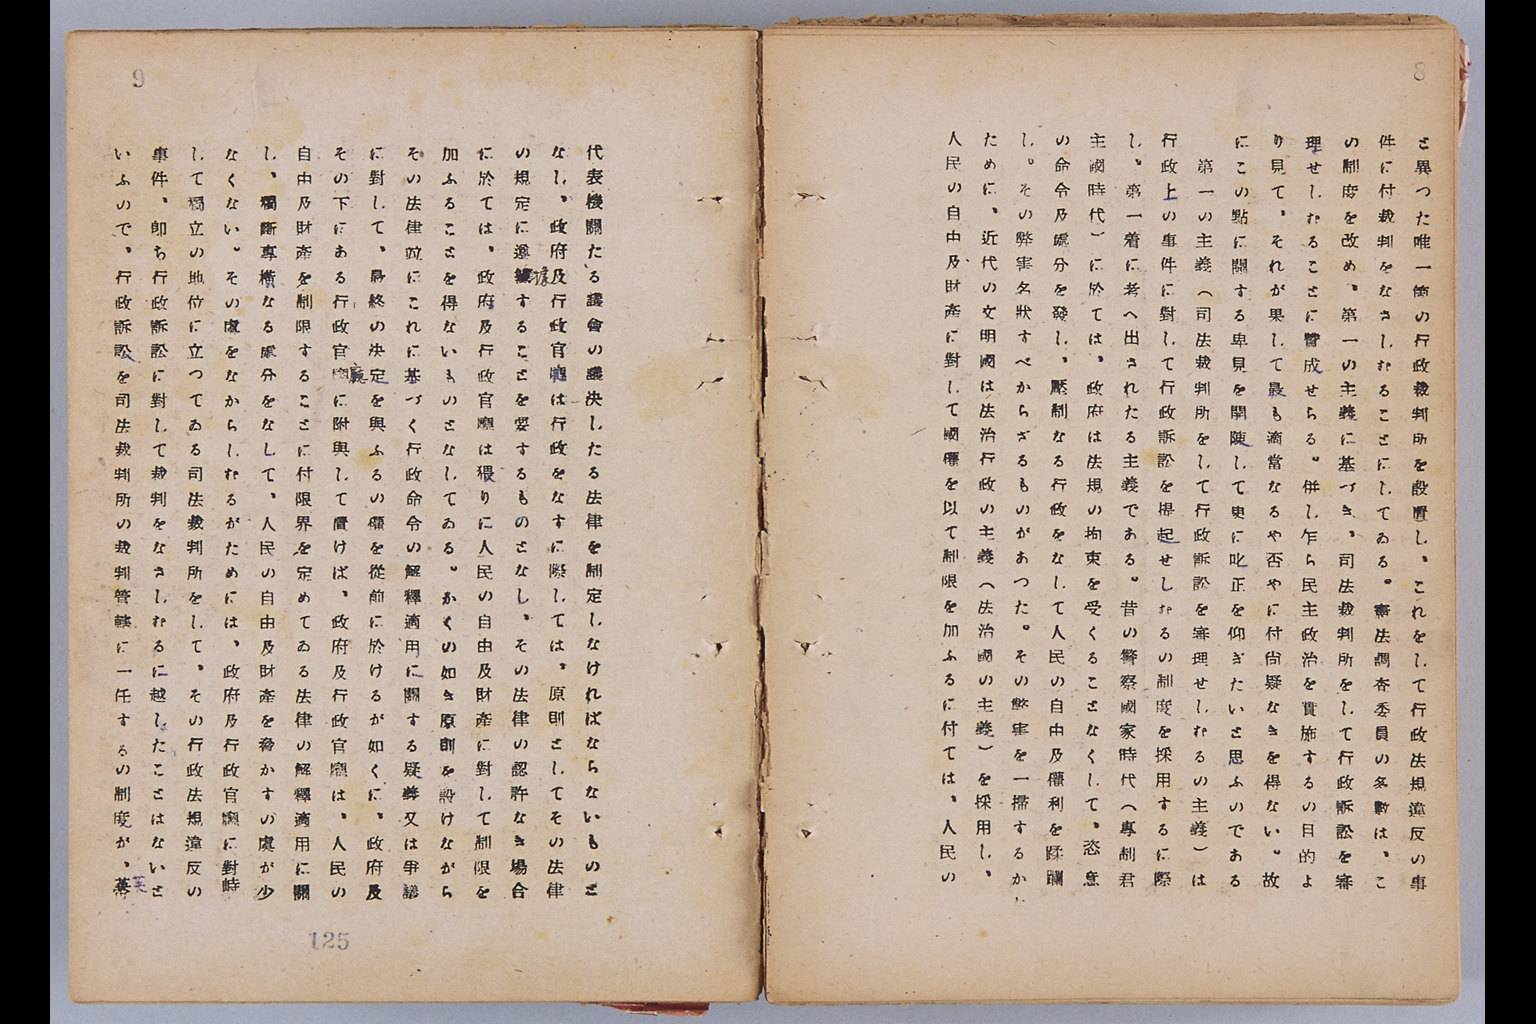 8
と異つた唯一箇の行政裁判所を設置し、これをして行政法規違反の事
件に付裁判をなさしむることにしてゐる。憲法調査委員の多數は、こ
の制度を改め、第一の主義に基づき、司法裁判所をして行政訴訟を審
理せしむることに贊成せらる。併し乍ら民主政治を實施するの目的よ
り見て、それが果して最も適當なるや否やに付尙疑なきを得ない。故
にこの點に關する卑見を開陳して更に叱正を仰ぎたいと思ふのである
第一の主義（司法裁判所をして行政訴訟を審理せしむるの主義）は
行政上の事件に對して行政訴訟を提起せしむるの制度を採用するに際
し、第一着に考へ出されたる主義である。昔の警察國家時代（專制君
主國時代）に於ては、政府は法規の拘束を受くることなくして、恣意
の命令及處分を發し、壓制なる行政をなして人民の自由及權利を蹂躪
し。その弊害名狀すべからざるものがあつた。その弊害を一掃するが
ために、近代の文明國は法治行政の主義（法治國の主義）を採用し、
人民の自由及財產に對して國權を以て制限を加ふるに付ては、人民の
9
代表機關たる議會の議決したる法律を制定しなければならないものと
なし、政府及行政官廳は行政をなすに際しては、原則としてその法律
の規定に遵據することを要するものとなし、その法律の認許なき場合
に於ては、政府及行政官廳は猥りに人民の自由及財產に對して制限を
加ふることを得ないものとなしてゐる。かくの如き原則を設けながら
その法律竝にこれに基づく行政命令の解釋適用に關する疑義又は爭議
に對して、最終の決定を與ふるの權を從前に於けるが如くに、政府及
その下にある行政官廳に附與して置けば、政府及行政官廳は、人民の
自由及財產を制限することに付限界を定めてゐる法律の解釋適用に關
し、獨斷專橫なる處分をなして、人民の自由及財產を脅かすの虞が少
なくない。その虞をなからしむるがためには、政府及行政官廳に對峙
して獨立の地位に立つてゐる司法裁判所をして、その行政法規違反の
事件、卽ち行政訴訟に對して裁判をなさしむるに越したことはないと
いふので、行政訴訟を司法裁判所の裁判管轄に一任するの制度が、英
125